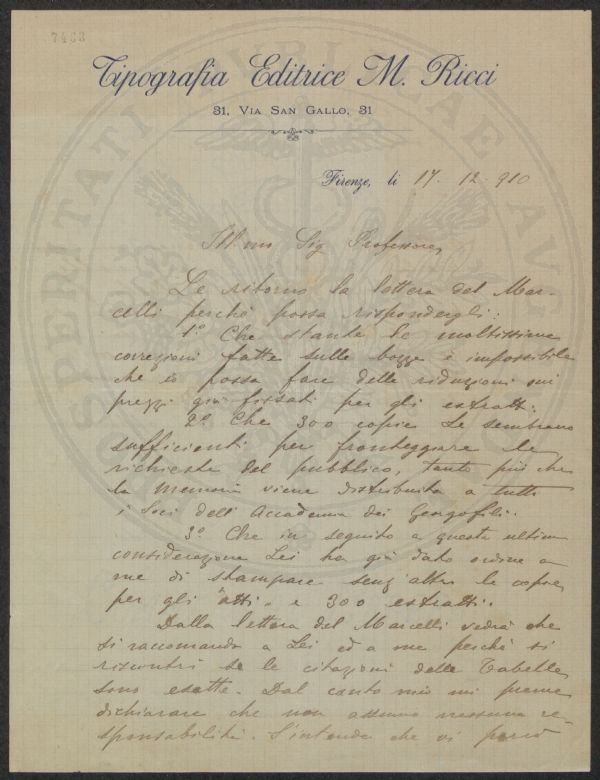 7463
Tipografia Editrice M. Ricci
31, Via San Gallo, 31
Firenze, li 17-12-910
Ill mo Sig Professore,
Le ritorno la lettera del Mar-
celli perchè possa rispondergli:
1° Che stante le moltissime
correzioni fatte sulle bozze è impossibile
che io possa fare delle riduzioni sui
prezzi già fissati per gli estratti.
2° Che 300 copie Le sembrano
sufficienti per fronteggiare le
richieste del pubblico, tanto più che
la Memoria viene distribuita a tutti
i Soci dell'Accademia dei Georgofili.
3° Che in seguito a questa ultima
considerazione Lei ha già dato ordine a
me di stampare senz'altro le copie
per gli "Atti" e 300 estratti.
Dalla lettera del Marcelli vedrà che
si raccomanda a Lei ed a me perchè si
riscontri se le citazioni delle Tabelle
sono esatte. Dal canto mio mi preme
dichiarare che non assumo nessuna re-
sponsabilità. S'intende che vi però